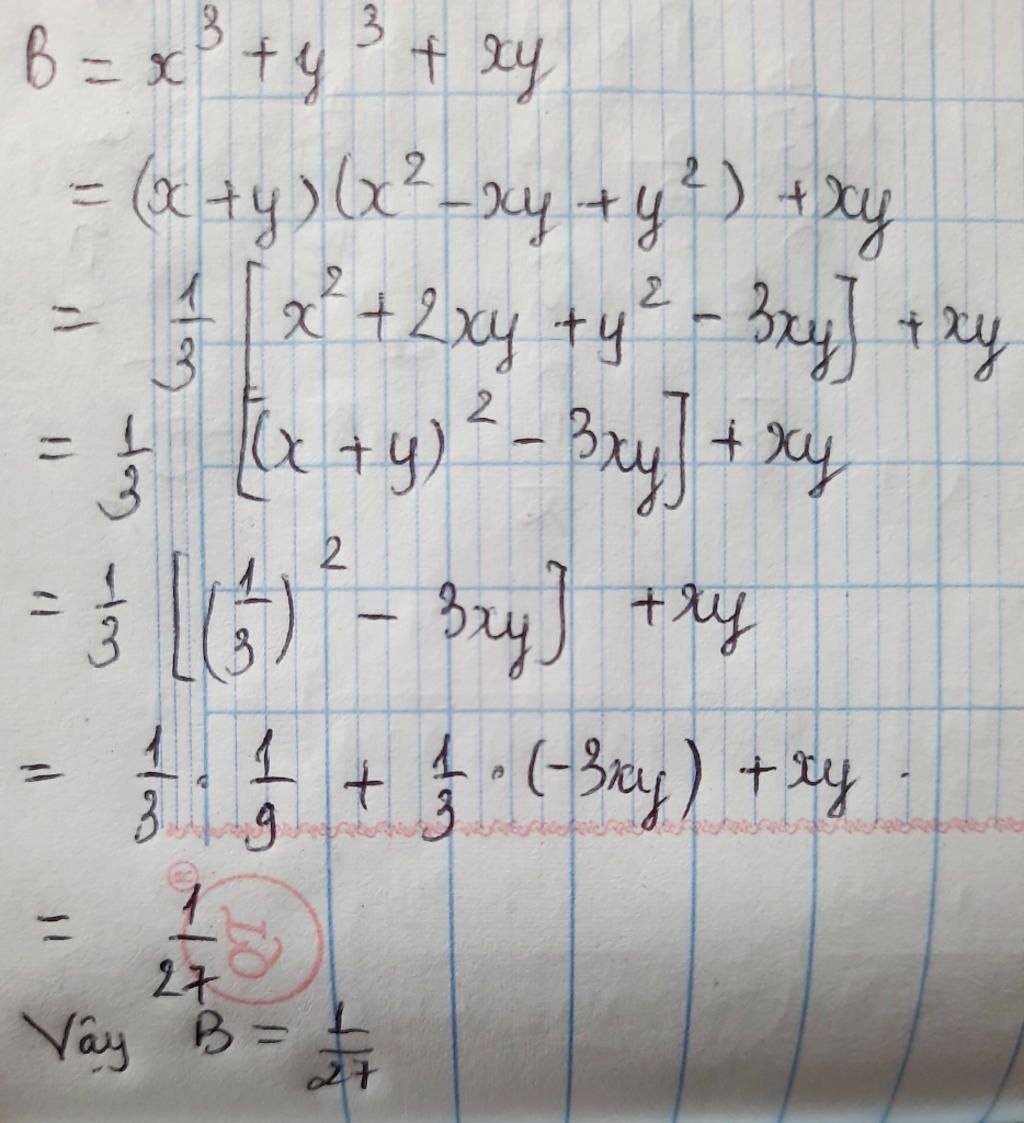 B = x³ + y³ + xy
= (x + y)(x² - xy + y²) + xy
= 1/3 [x² + 2xy + y² - 3xy] + xy
= 1/3 [(x + y)² - 3xy] + xy
= 1/3 [(1/3)² - 3xy] + xy
= 1/3 . 1/9 + 1/3 . (-3xy) + xy .
= 1/27
Vậy B = 1/27